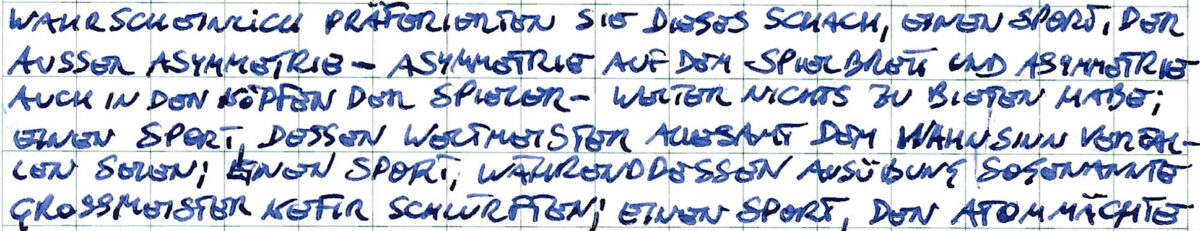 WAHRSCHEINLICH PRÄFERIERTEN SIE DIESES SCHACH, EINEN SPORT, DER
AUSSER ASYMMETRIE – ASYMMETRIE AUF DEM SPIELBRETT UND ASYMMETRIE
AUCH IN DEN KÖPFEN DER SPIELER – WEITER NICHTS ZU BIETEN HABE;
EINEN SPORT, DESSEN WELTMEISTER ALLESAMT DEM WAHNSINN VERFAL-
LEN SEIEN; EINEN SPORT, WÄHRENDDESSEN AUSÜBUNG SOGENANNTE
GROSSMEISTER KEFIR SCHLÜRFTEN; EINEN SPORT, DEN ATOMMÄCHTE